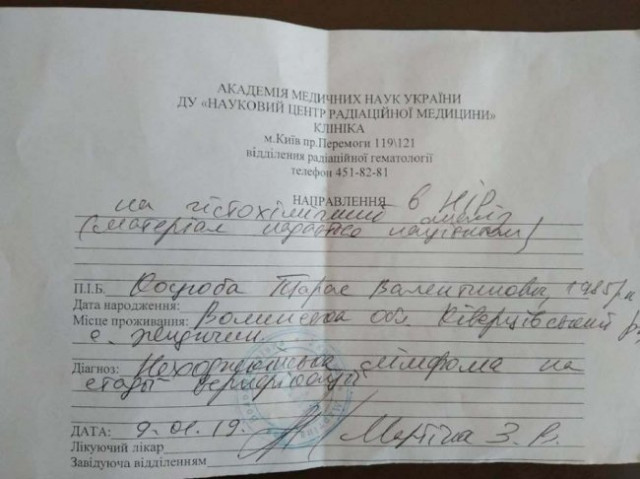 АКАДЕМІЯ МЕДИЧНИХ НАУК УКРАЇНИ
ДУ «НАУКОВИЙ ЦЕНТР РАДІАЦІЙНОЇ МЕДИЦИНИ»
КЛІНІКА
м.Київ пр.Перемоги 119\121
відділення радіаційної гематології
телефон 451-82-81
НАПРАВЛЕННЯ в НІР
на гістохімічний
(матеріал надано пацієнтом)
П.І.Б. Тарас Валентинович, 1985р.н
Дата народження:
Місце проживання: Волинська обл. Ківерцівський
с. Жидичин
Діагноз: Неходжкінська лімфома на
стадії верифікації
ДАТА: 9.01.19.
З. В.
Лікуючий лікар
Завідуюча відділенням